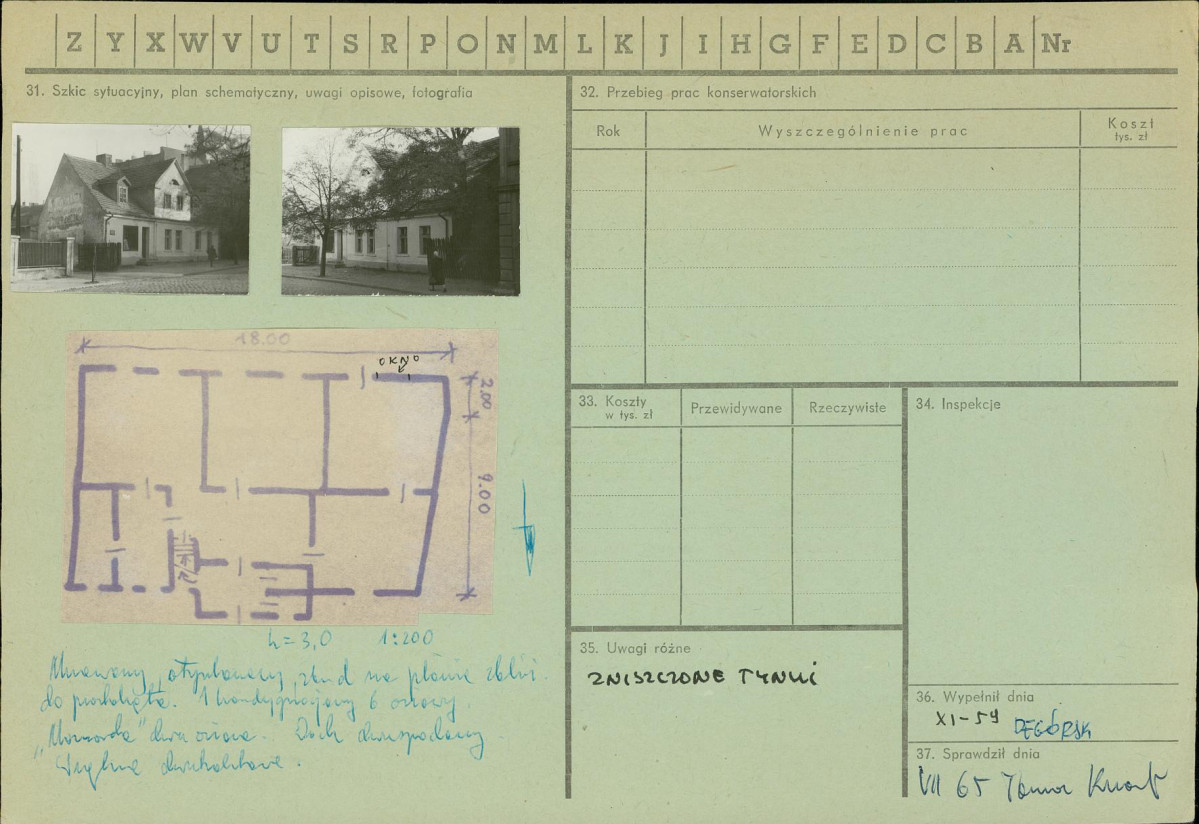 Z Y X W V U T S R P O N M L K J I H G F E D C B A Nr
31. Szkic sytuacyjny, plan schematyczny, uwagi opisowe, fotografia
18.00
OKNO
2.00
9.00
h=3,0 1:200
Murowany, otynkowany, zbud na planie zbliż.
do prostokąta. 1 kondygnacjowy 6 osiowy.
dwu osiowa. Dach dwuspadowy.
32. Przebieg prac konserwatorskich
Rok
Wyszczególnienie prac
Koszt
tys. zł
33. Koszty
w tys. zł
Przewidywane
Rzeczywiste
34. Inspekcje
35. Uwagi różne
ZNISZCZONE TYNKI
36. Wypełnił dnia
XI-59 DĘGÓRSK
37. Sprawdził dnia
VII 65